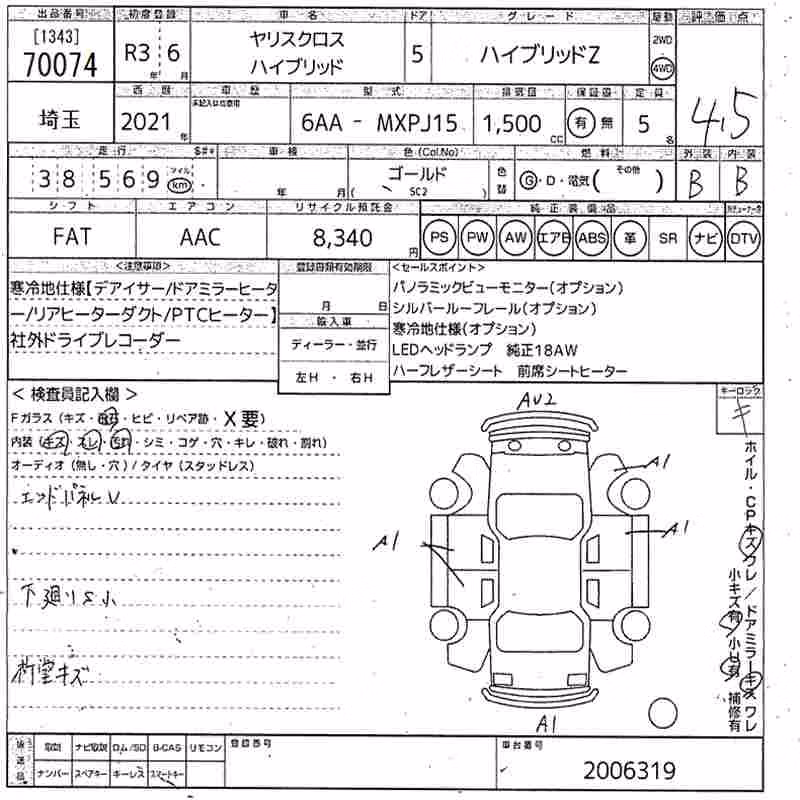 出品番号 初度登録 車名 ドア グレード 駆動 評価点
[1343]
70074 R3年 6月 ヤリスクロス ハイブリッド 5 ハイブリッドZ 2WD 4WD 4.5
西暦 車歴 型式 排気量 保証書 定員
埼玉 2021年 未記入は自家用 6AA - MXPJ15 1,500cc 有 無 5名
走行 S## 車検 色(Col.No) 燃料 外装 内装
38569 マイル km 年 月 ゴールド (SC2) 色替 G・D・電気(その他) B B
シフト エアコン リサイクル預託金 純正装備品
FAT AAC 8,340円 PS PW AW エアB ABS 革 SR ナビ DTV
<注意事項> 登録書類有効期限 <セールスポイント>
寒冷地仕様【デアイサー/ドアミラーヒータ
ー/リアヒーターダクト/PTCヒーター】
社外ドライブレコーダー
月 日
輸入車
ディーラー・並行
左H ・ 右H
パノラミックビューモニター(オプション)
シルバールーフレール(オプション)
寒冷地仕様(オプション)
LEDヘッドランプ 純正18AW
ハーフレザーシート 前席シートヒーター
< 検査員記入欄 >
Fガラス (キズ・飛石・ヒビ・リペア跡・X要)
内装 (キズ・スレ・汚れ・シミ・コゲ・穴・キレ・破れ・割れ)
オーディオ (無し・穴) / タイヤ (スタッドレス)
エンドパネルU
下廻りS小
キズ
AU2
A1
A1
A1
A1
キーロック
キ
ホイル・CPキズワレ/ドアミラーキズワレ
小キズ有/小U有 補修有
後送品 取説 ナビ取説 ロム/SD B-CAS リモコン 登録番号 車台番号
ナンバー スペアキー キーレス スマートキー 2006319